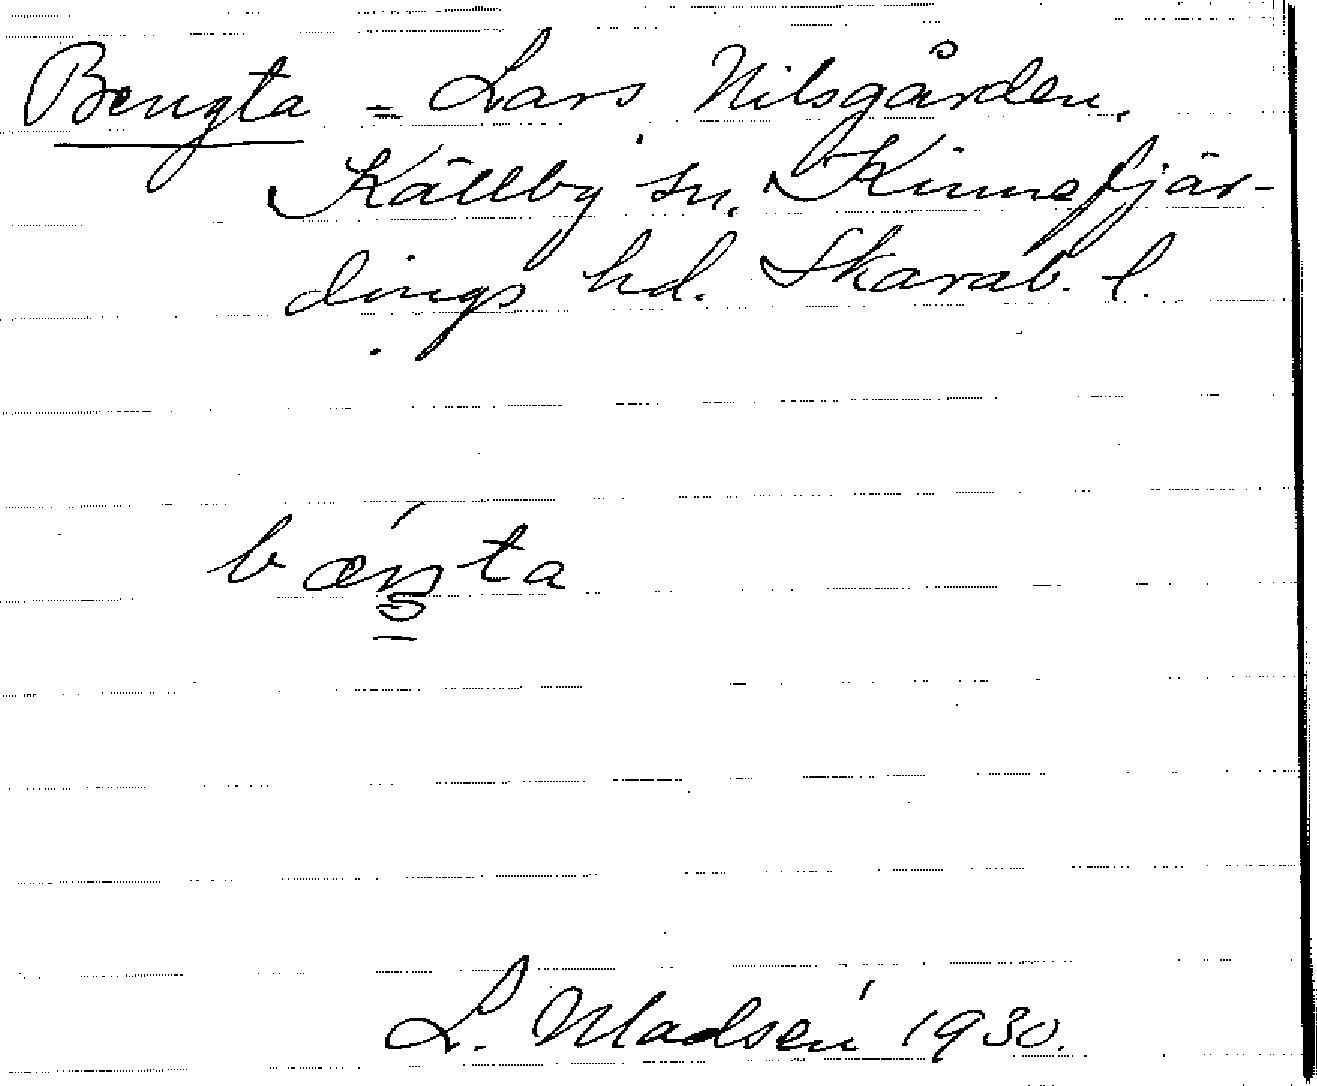 Bengta = Lars Nilsgården,
Källby sn, Kinnefjär-
dings hd. Skarab. l.
bænta
L. Madsén 1930.